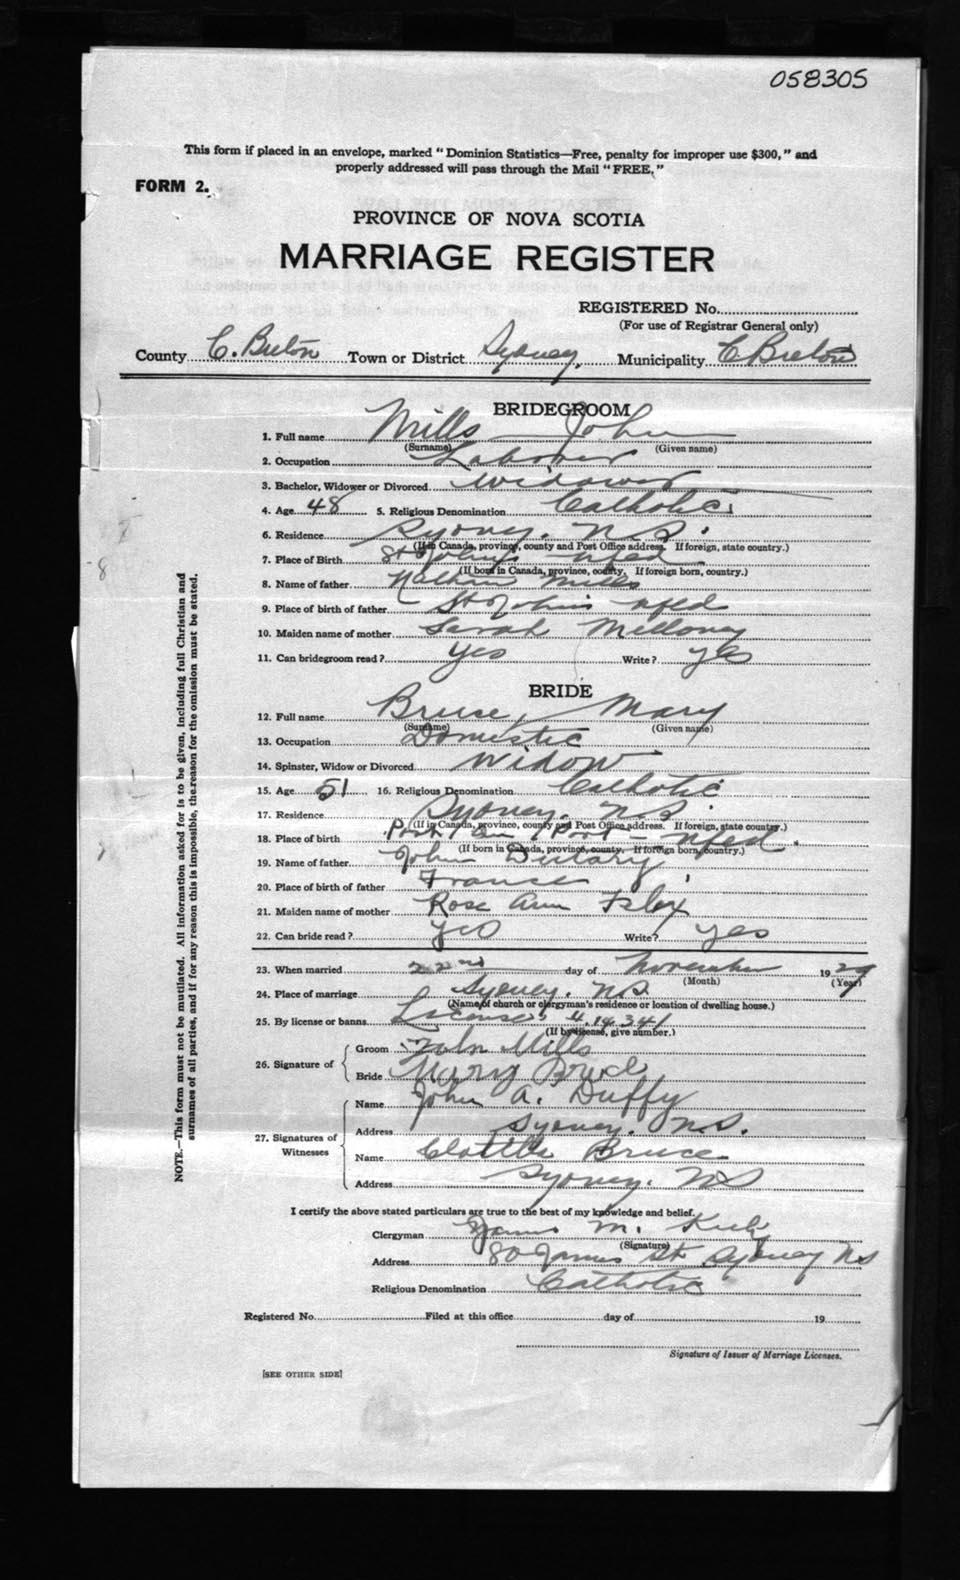 058305
This form if placed in an envelope, marked “ Dominion Statistics—Free, penalty for improper use $300, ” and
properly addressed will pass through the Mail “ FREE. ”
FORM 2.
PROVINCE OF NOVA SCOTIA
MARRIAGE REGISTER
REGISTERED No.
(For use of Registrar General only)
County C. Breton Town or District Sydney, Municipality C Breton
BRIDEGROOM
1. Full name Mills John
(Surname) (Given name)
2. Occupation Laborer
3. Bachelor, Widower or Divorced Widower
4. Age 48 5. Religious Denomination Catholic
6. Residence Sydney. N.S.
(If in Canada, province, county and Post Office address. If foreign, state country.)
7. Place of Birth St John's Nfld
(If born in Canada, province, county. If foreign born, country.)
8. Name of father Nathan Mills
9. Place of birth of father St John's Nfld
10. Maiden name of mother Sarah Melloney
11. Can bridegroom read? Yes Write? yes
BRIDE
12. Full name Bruce, Mary
(Surname) (Given name)
13. Occupation Domestic
14. Spinster, Widow or Divorced Widow
15. Age 51 16. Religious Denomination Catholic
17. Residence Sydney. N.S.
(If in Canada, province, county and Post Office address. If foreign, state country.)
18. Place of birth Port Port Nfld.
(If born in Canada, province, county. If foreign born, country.)
19. Name of father John
20. Place of birth of father France
21. Maiden name of mother Rose Ann
22. Can bride read? yes Write? yes
23. When married 22nd day of November 1929
(Month) (Year)
24. Place of marriage Sydney. N.S.
(Name of church or clergyman's residence or location of dwelling house.)
25. By license or banns License 4.14341
(If by license, give number.)
26. Signature of
Groom John Mills
Bride Mary Bruce
27. Signatures of Witnesses
Name John A. Duffy
Address Sydney. N.S.
Name Bruce
Address Sydney. NS
I certify the above stated particulars are true to the best of my knowledge and belief.
Clergyman James M. Kiely
(Signature)
Address 80 James St Sydney NS
Religious Denomination Catholic
Registered No. Filed at this office day of 19
Signature of Issuer of Marriage Licenses.
[SEE OTHER SIDE]
NOTE.—This form must not be mutilated. All information asked for is to be given, including full Christian and
surnames of all parties, and if for any reason this is impossible, the reason for the omission must be stated.